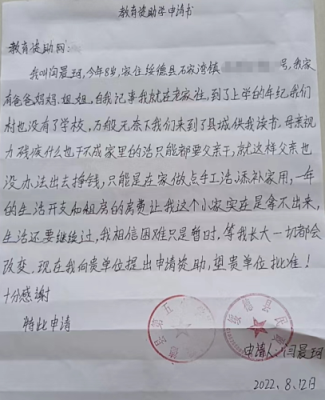 教育资助学申请书
教育资助网:
我叫闫晨珂,今年8岁,家住绥德县石家湾镇 号,我家
有爸爸妈妈、姐姐,自我记事我就在老家住,到了上学的年纪我们
村也没有了学校,万般无奈下我们来到了县城供我读书。母亲视
力残疾什么也干不成家里的活只能都要父亲干,就这样父亲也
没办法出去挣钱,只能是在家做点手工活,添补家用,一年
的生活开支和租房的房费让我这个小家实在是拿不出来,
生活还要继续过,我相信困难只是暂时,等我长大一切都会
改变。现在我向贵单位提出申请资助,望贵单位批准!
十分感谢
特此申请
申请人:闫晨珂
2022.8.12日